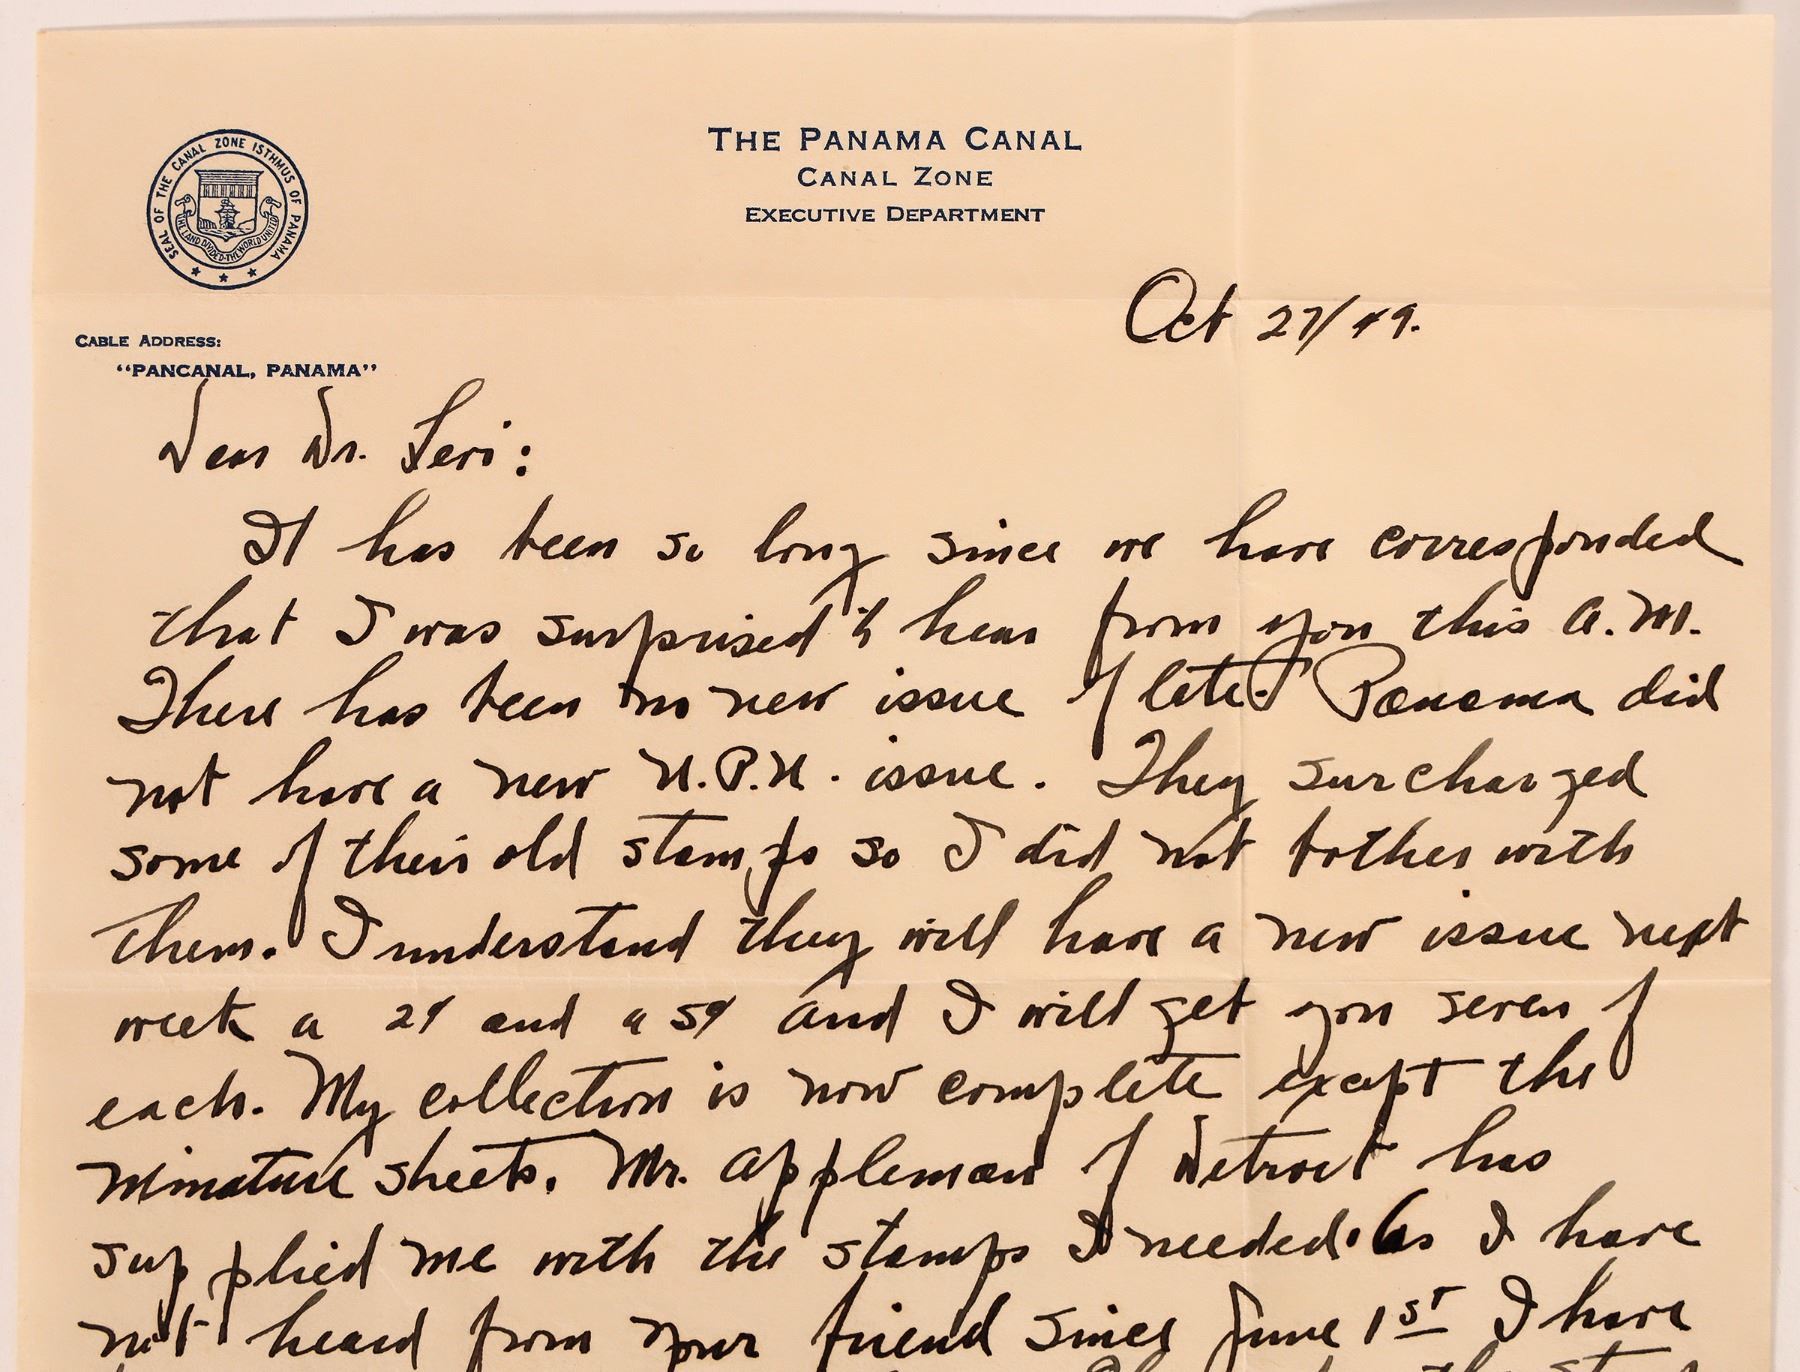 SEAL OF THE CANAL ZONE ISTHMUS OF PANAMA
THE LAND DIVIDED THE WORLD UNITED
THE PANAMA CANAL
CANAL ZONE
EXECUTIVE DEPARTMENT
Oct 27/49.
CABLE ADDRESS:
"PANCANAL, PANAMA"
Dear Dr. Levi:
It has been so long since we have corresponded
that I was surprised to hear from you this A.M.
There has been no new issue of late. Panama did
not have a new U.P.U. issue. They surcharged
some of their old stamps so I did not bother with
them. I understand they will have a new issue next
week a 2¢ and a 5¢ and I will get you seven of
each. My collection is now complete except the
minature sheets. Mr. Appleman of Detroit has
supplied me with the stamps I needed. As I have
not heard from your friend since June 1st I have